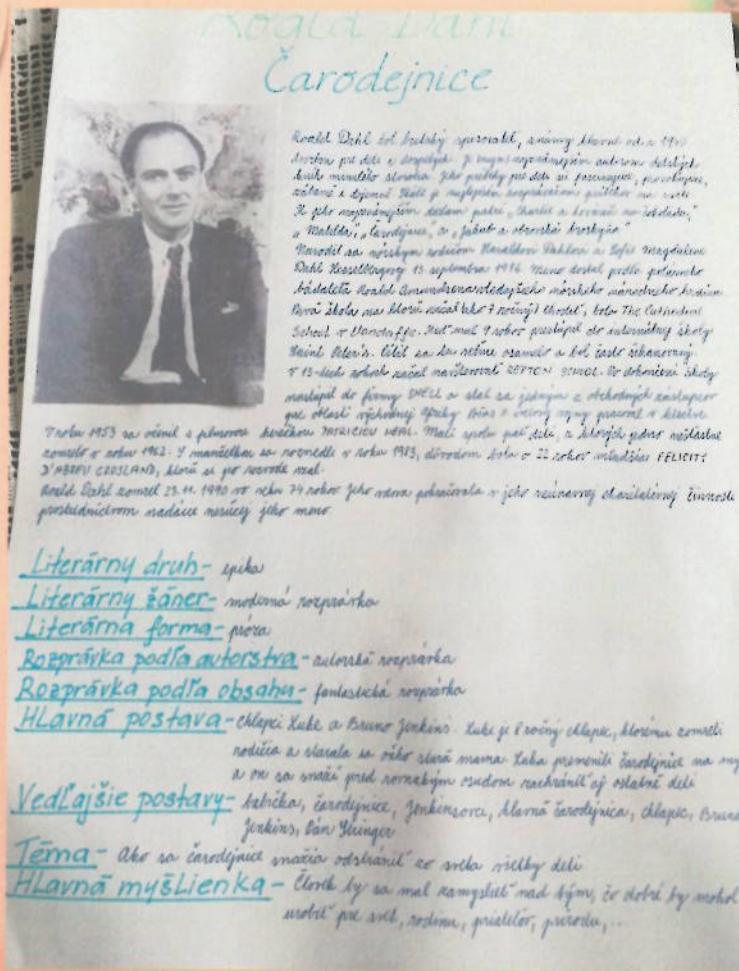 Roald Dahl
Čarodejnice
Roald Dahl bol britský spisovateľ, známy hlavne od r. 1940
tvorbou pre deti a dospelých. Je najznámejším autorom detských
kníh minulého storočia. Jeho príbehy pre deti sú fascinujúce,
zábavné a dojemné. je najlepším rozprávačom príbehov na svete
K jeho najznámejším dielam patrí „Charlie a továreň na čokoládu,"
„Matilda", „Čarodejnice", a „Jakub a obrovská broskyňa"
Narodil sa nórskym rodičom Haraldovi Dahlovi a Sofii Magdalene
Dahl Hesselbergovej 13. septembra 1916. Meno dostal podľa polárneho
bádateľa Roald Amundsena vtedajšieho nórskeho národného hrdinu
Prvá škola na ktorú začal ako 7 ročný chodiť, bola The Cathedral
School v Llandaffe. Keď mal 9 rokov prestúpil do internátnej školy
Saint Peter's. Cítil sa tu veľmi osamelo a bol často šikanovaný.
V 13-tich rokoch začal navštevovať REPTON SCHOOL. Po dokončení školy
nastúpil do firmy SHELL a stal sa jedným z obchodných zástupcov
pre oblasti východnej Afriky. Počas vojny pracoval v letectve
V roku 1953 sa oženil s filmovou herečkou PATRICIOU NEAL. Mali spolu päť detí, z ktorých jedno nešťastne
zomrelo v roku 1962. S manželkou sa rozviedli v roku 1983, dôvodom bola o 22 rokov mladšia FELICITY
D'ABREU CROSLAND, ktorú si po rozvode vzal.
Roald Dahl zomrel 23. 11. 1990 vo veku 74 rokov. Jeho vdova pokračovala v jeho neúnavnej charitatívnej činnosti
prostredníctvom nadácie nesúcej jeho meno.
Literárny druh - epika
Literárny žáner - moderná rozprávka
Literárna forma - próza
Rozprávka podľa autorstva - autorská rozprávka
Rozprávka podľa obsahu - fantastická rozprávka
Hlavná postava - chlapci Luke a Bruno Jenkins. Luke je 8 ročný chlapec, ktorému zomreli
rodičia a starala sa oňho stará mama. Luka premenili čarodejnice na my
a on sa snaží pred rovnakým osudom zachrániť aj ostatné deti
Vedľajšie postavy - babička, čarodejnice, Jenkinsovci, hlavná čarodejnica, chlapec, Bruno
Jenkins, Pán Stringer
Téma - Ako sa čarodejnice snažia odstrániť zo sveta všetky deti
Hlavná myšlienka - Človek by sa mal zamyslieť nad tým, čo dobré by mohol
urobiť pre svet, rodinu, priateľov, prírodu,...